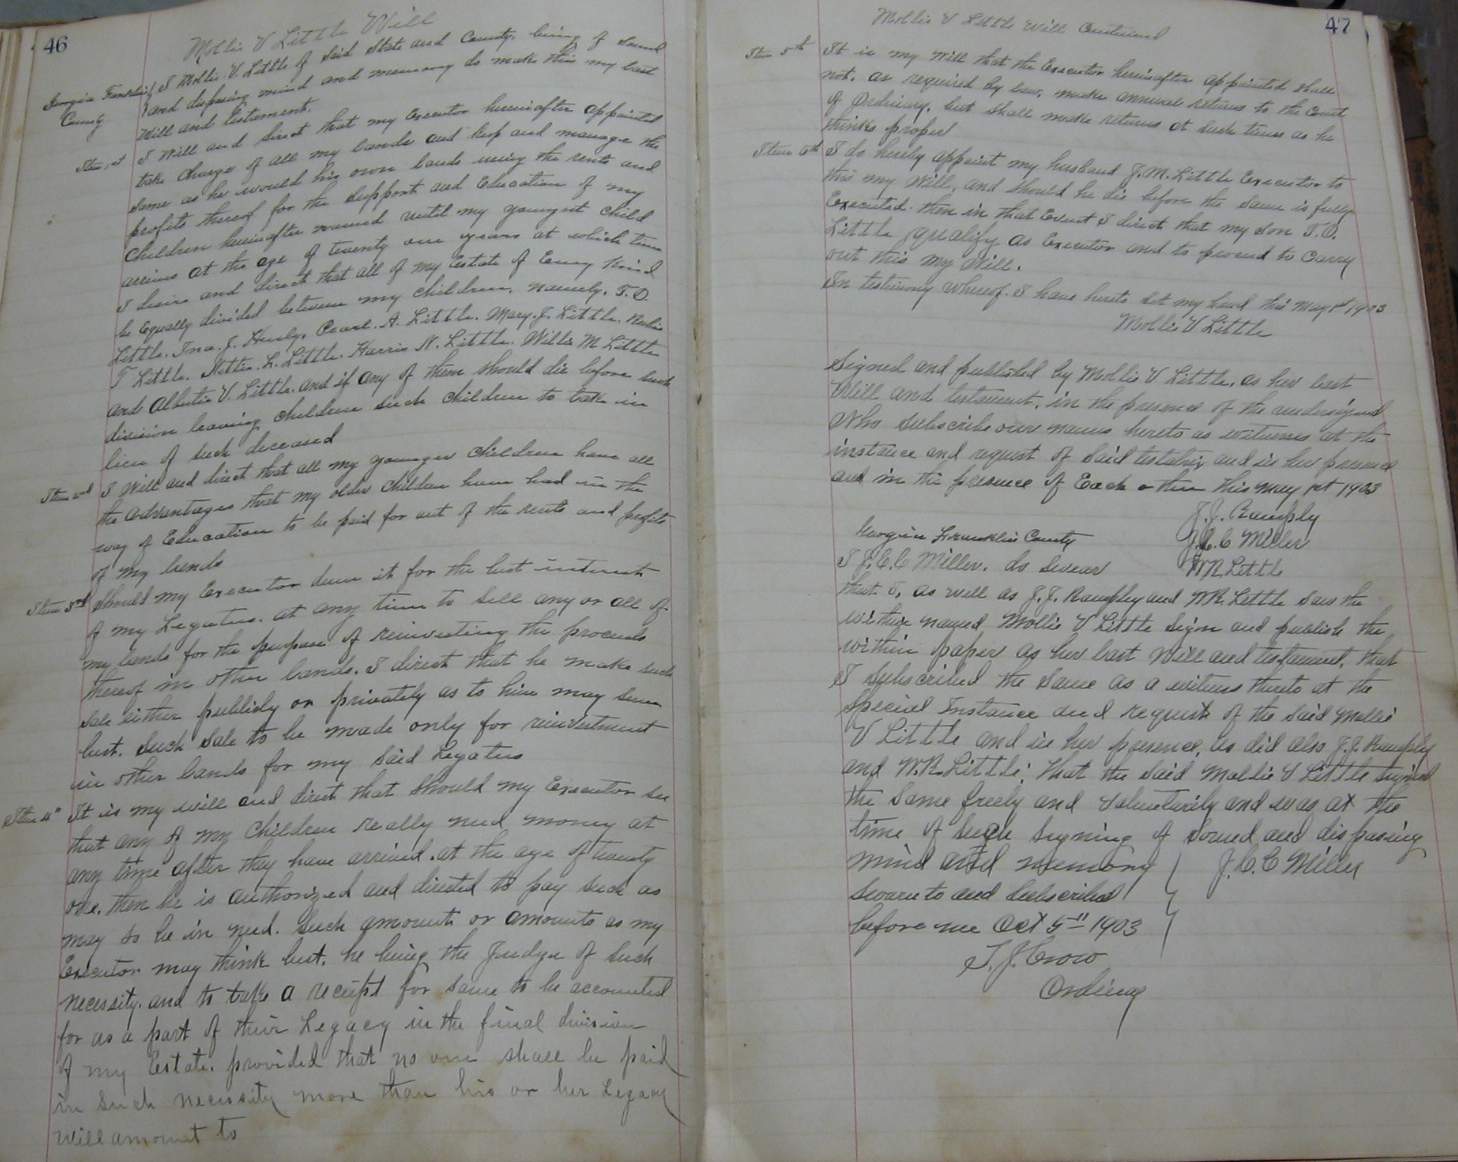 46
Mollie V Little Will
Georgia Franklin County
I Mollie V. Little of Said State and County, being of Sound
and disposing mind and memory do make this my last
Will and Testament.
Item 1st I Will and direct that my Executor hereinafter appointed
take charge of all my lands and keep and manage the
same as he would his own lands using the rents and
profits thereof for the Support and Education of my
Children hereinafter named until my youngest child
arrives at the age of twenty one years at which time
I desire and direct that all of my Estate of Every Kind
be Equally divided between my children, namely, T. O.
Little. Ina. J. Pearl. A. Little. Mary. J. Little.
T Little. Nettie. L. Little. Harris N. Little. Willie M Little
and V. Little. and if any of them should die before such
division leaving children such children to take in
lieu of such deceased
Item 2nd I Will and direct that all my younger children have all
the advantages that my older children have had in the
way of Education to be paid for out of the rents and profits
of my lands
Item 3rd Should my Executor deem it for the best interest
of my Legatees. at any time to sell any or all of
my lands for the purpose of reinvesting the proceeds
thereof in other lands. I direct that he make such
sale either publicly or privately as to him may seem
best. Such sale to be made only for reinvestment
in other lands for my said Legatees
Item 4th It is my will and direct that should my Executor see
that any of my Children really need money at
any time after they have arrived. at the age of twenty
one. then he is authorized and directed to pay such as
may so be in need. Such amount or amounts as my
Executor may think best. he being the Judge of such
necessity. and to take a receipt for same to be accounted
for as a part of their Legacy in the final division
of my Estate. provided that no one shall be paid
in such necessity more than his or her Legacy
will amount to
47
Mollie V Little Will Continued
Item 5th It is my Will that the Executor hereinafter appointed shall
not. as required by law, make annual returns to the Court
of Ordinary. but shall make returns at such times as he
thinks proper
Item 6th I do hereby appoint my husband J. M. Little Executor to
this my Will, and should he die before the same is fully
Executed. then in that Event I direct that my son T. O.
Little qualify as Executor and to proceed to Carry
out this my Will.
In testimony whereof. I have hereto set my hand this May 1st 1903
Mollie V Little
Signed and published by Mollie V Little, as her last
Will and testament, in the presence of the undersigned
Who Subscribe our names hereto as witnesses at the
instance and request of said testatrix and in her presence
and in the presence of Each other this May 1st 1903
J. J. Rampley
J. C. C Miller
W R Little
Georgia Franklin County
I J. C. C Miller. do swear
that I, as well as J. J. Rampley and W R. Little saw the
within named, Mollie V Little sign and publish the
within paper as her last Will and testament. that
I subscribed the same as a witness thereto at the
Special Instance and request of the said Mollie
V Little and in her presence, as did also J. J. Rampley
and W. R Little. That the said Mollie V Little signed
the same freely and voluntarily and was at the
time of such signing of sound and disposing
mind and memory
J. C. C Miller
Sworn to and Subscribed
before me Oct 5th 1903
T. J. Crow
Ordinary